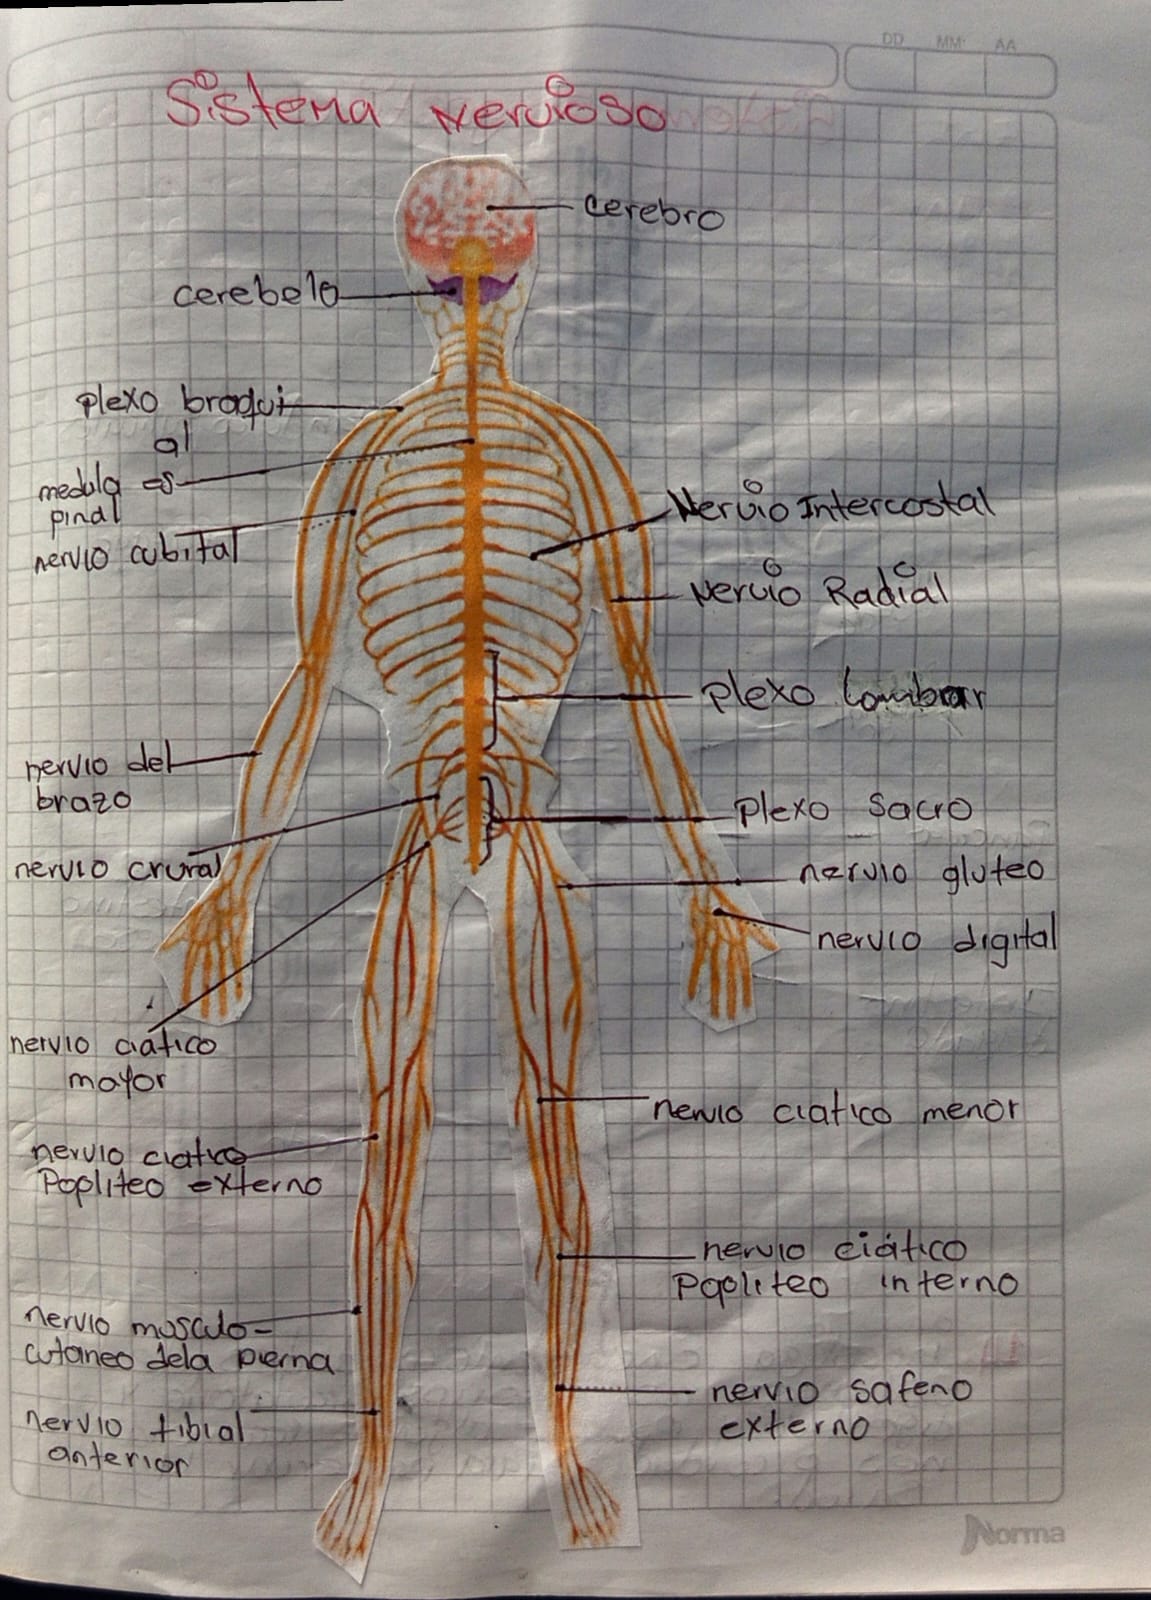 DD MM AA
Sistema nervioso
cerebro
cerebelo
plexo braqui
al
medula es
pinal
nervio cubital
Nervio Intercostal
Nervio Radial
plexo lombar
nervio del
brazo
plexo sacro
nervio crural
nervio gluteo
nervio digital
nervio ciático
mayor
nervio ciatico menor
nervio ciatico
Popliteo externo
nervio ciático
Popliteo interno
nervio musculo-
cutaneo dela pierna
nervio safeno
externo
nervio tibial
anterior
Norma